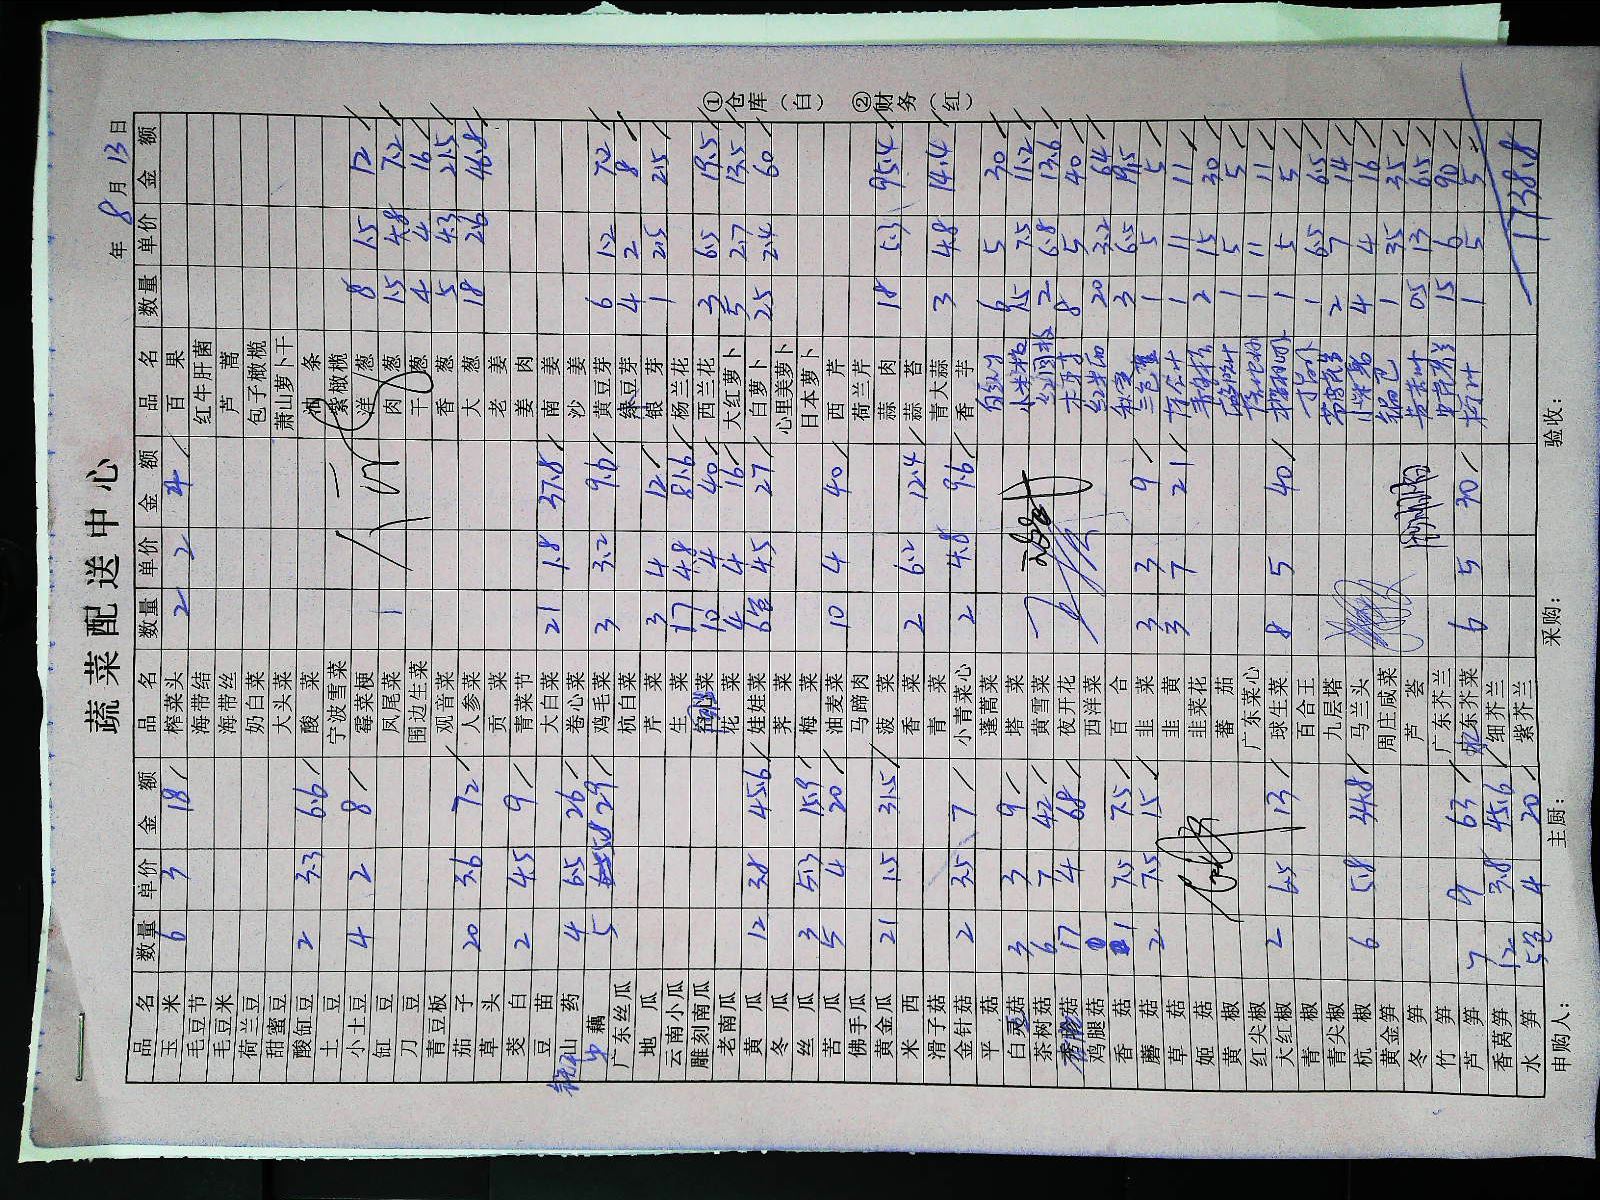 蔬菜配送中心
年 8月13日
品名 数量 单价 金额 品名 数量 单价 金额 品名 数量 单价 金额
玉米 6 3 18 榨菜头 2 2 4 百果
毛豆节 海带结 红牛肝菌
毛豆米 海带丝 芦蒿
荷兰豆 奶白菜 包子橄榄
甜蜜豆 大头菜 萧山萝卜干
酸缸豆 2 3.3 6.6 酸菜 油条
土豆 宁波雪菜 紫橄榄
小土豆 4 2 8 霉菜梗 洋葱 8 1.5 12
缸豆 凤尾菜 肉葱 1.5 4.8 7.2
刀豆 围边生菜 干葱 4 4 16
青豆板 观音菜 香葱 5 4.3 21.5
茄子 20 3.6 72 人参菜 大葱 18 2.6 46.8
草头 贡菜 老姜
茭白 2 4.5 9 青菜节 姜肉
豆苗 大白菜 21 1.8 37.8 南姜
山药 4 6.5 26 卷心菜 沙姜
藕 5 5.8 29 鸡毛菜 3 3.2 9.6 黄豆芽 6 1.2 7.2
广东丝瓜 杭白菜 绿豆芽 4 2 8
地瓜 芹菜 3 4 12 银芽 1 2.5 2.5
云南小瓜 生菜 17 4.8 81.6 杨兰花
雕刻南瓜 菜 10 4 40 西兰花 3 6.5 19.5
老南瓜 花菜 4 4 16 大红萝卜 5 2.7 13.5
黄瓜 12 3.8 45.6 娃娃菜 6 4.5 27 白萝卜 25 2.4 60
冬瓜 荠菜 心里美萝卜
丝瓜 3 5.3 15.9 梅菜 日本萝卜
苦瓜 5 4 20 油麦菜 10 4 40 西芹
佛手瓜 马蹄肉 荷兰芹
黄金瓜 21 1.5 31.5 菠菜 蒜肉 18 5.3 95.4
米西 香菜 2 6.2 12.4 蒜苔
滑子菇 青菜 青大蒜 3 4.8 14.4
金针菇 2 3.5 7 小青菜心 2 4.8 9.6 香芋
平菇 蓬蒿菜 6 5 30
白灵菇 3 3 9 塔菜 小米粒 1.5 7.5 11.2
茶树菇 6 7 42 黄雪菜 2 6.8 13.6
秀珍菇 17 4 68 夜开花 8 5 40
鸡腿菇 西洋菜 20 3.2 64
香菇 1 7.5 7.5 百合 3 6.5 19.5
蘑菇 2 7.5 15 韭菜 3 3 9 1 5 5
草菇 韭黄 3 7 21 1 11 11
姬菇 韭菜花 2 15 30
黄椒 蕃茄 1 5 5
红尖椒 广东菜心 1 11 11
大红椒 2 6.5 13 球生菜 8 5 40 1 5 5
青椒 百合王 1 6.5 6.5
青尖椒 九层塔 2 7 14
杭椒 6 5.8 34.8 马兰头 小米椒 4 4 16
黄金笋 周庄咸菜 1 35 35
冬笋 芦荟 05 13 6.5
竹笋 广东芥兰 15 6 90
芦笋 7 9 63 广东芥菜 6 5 30 1 5 5
香莴笋 12 3.8 45.6 细芥兰
水笋 5 4 20 紫芥兰 1738.8
申购人： 主厨： 采购： 验收：
①仓库（白） ②财务（红）